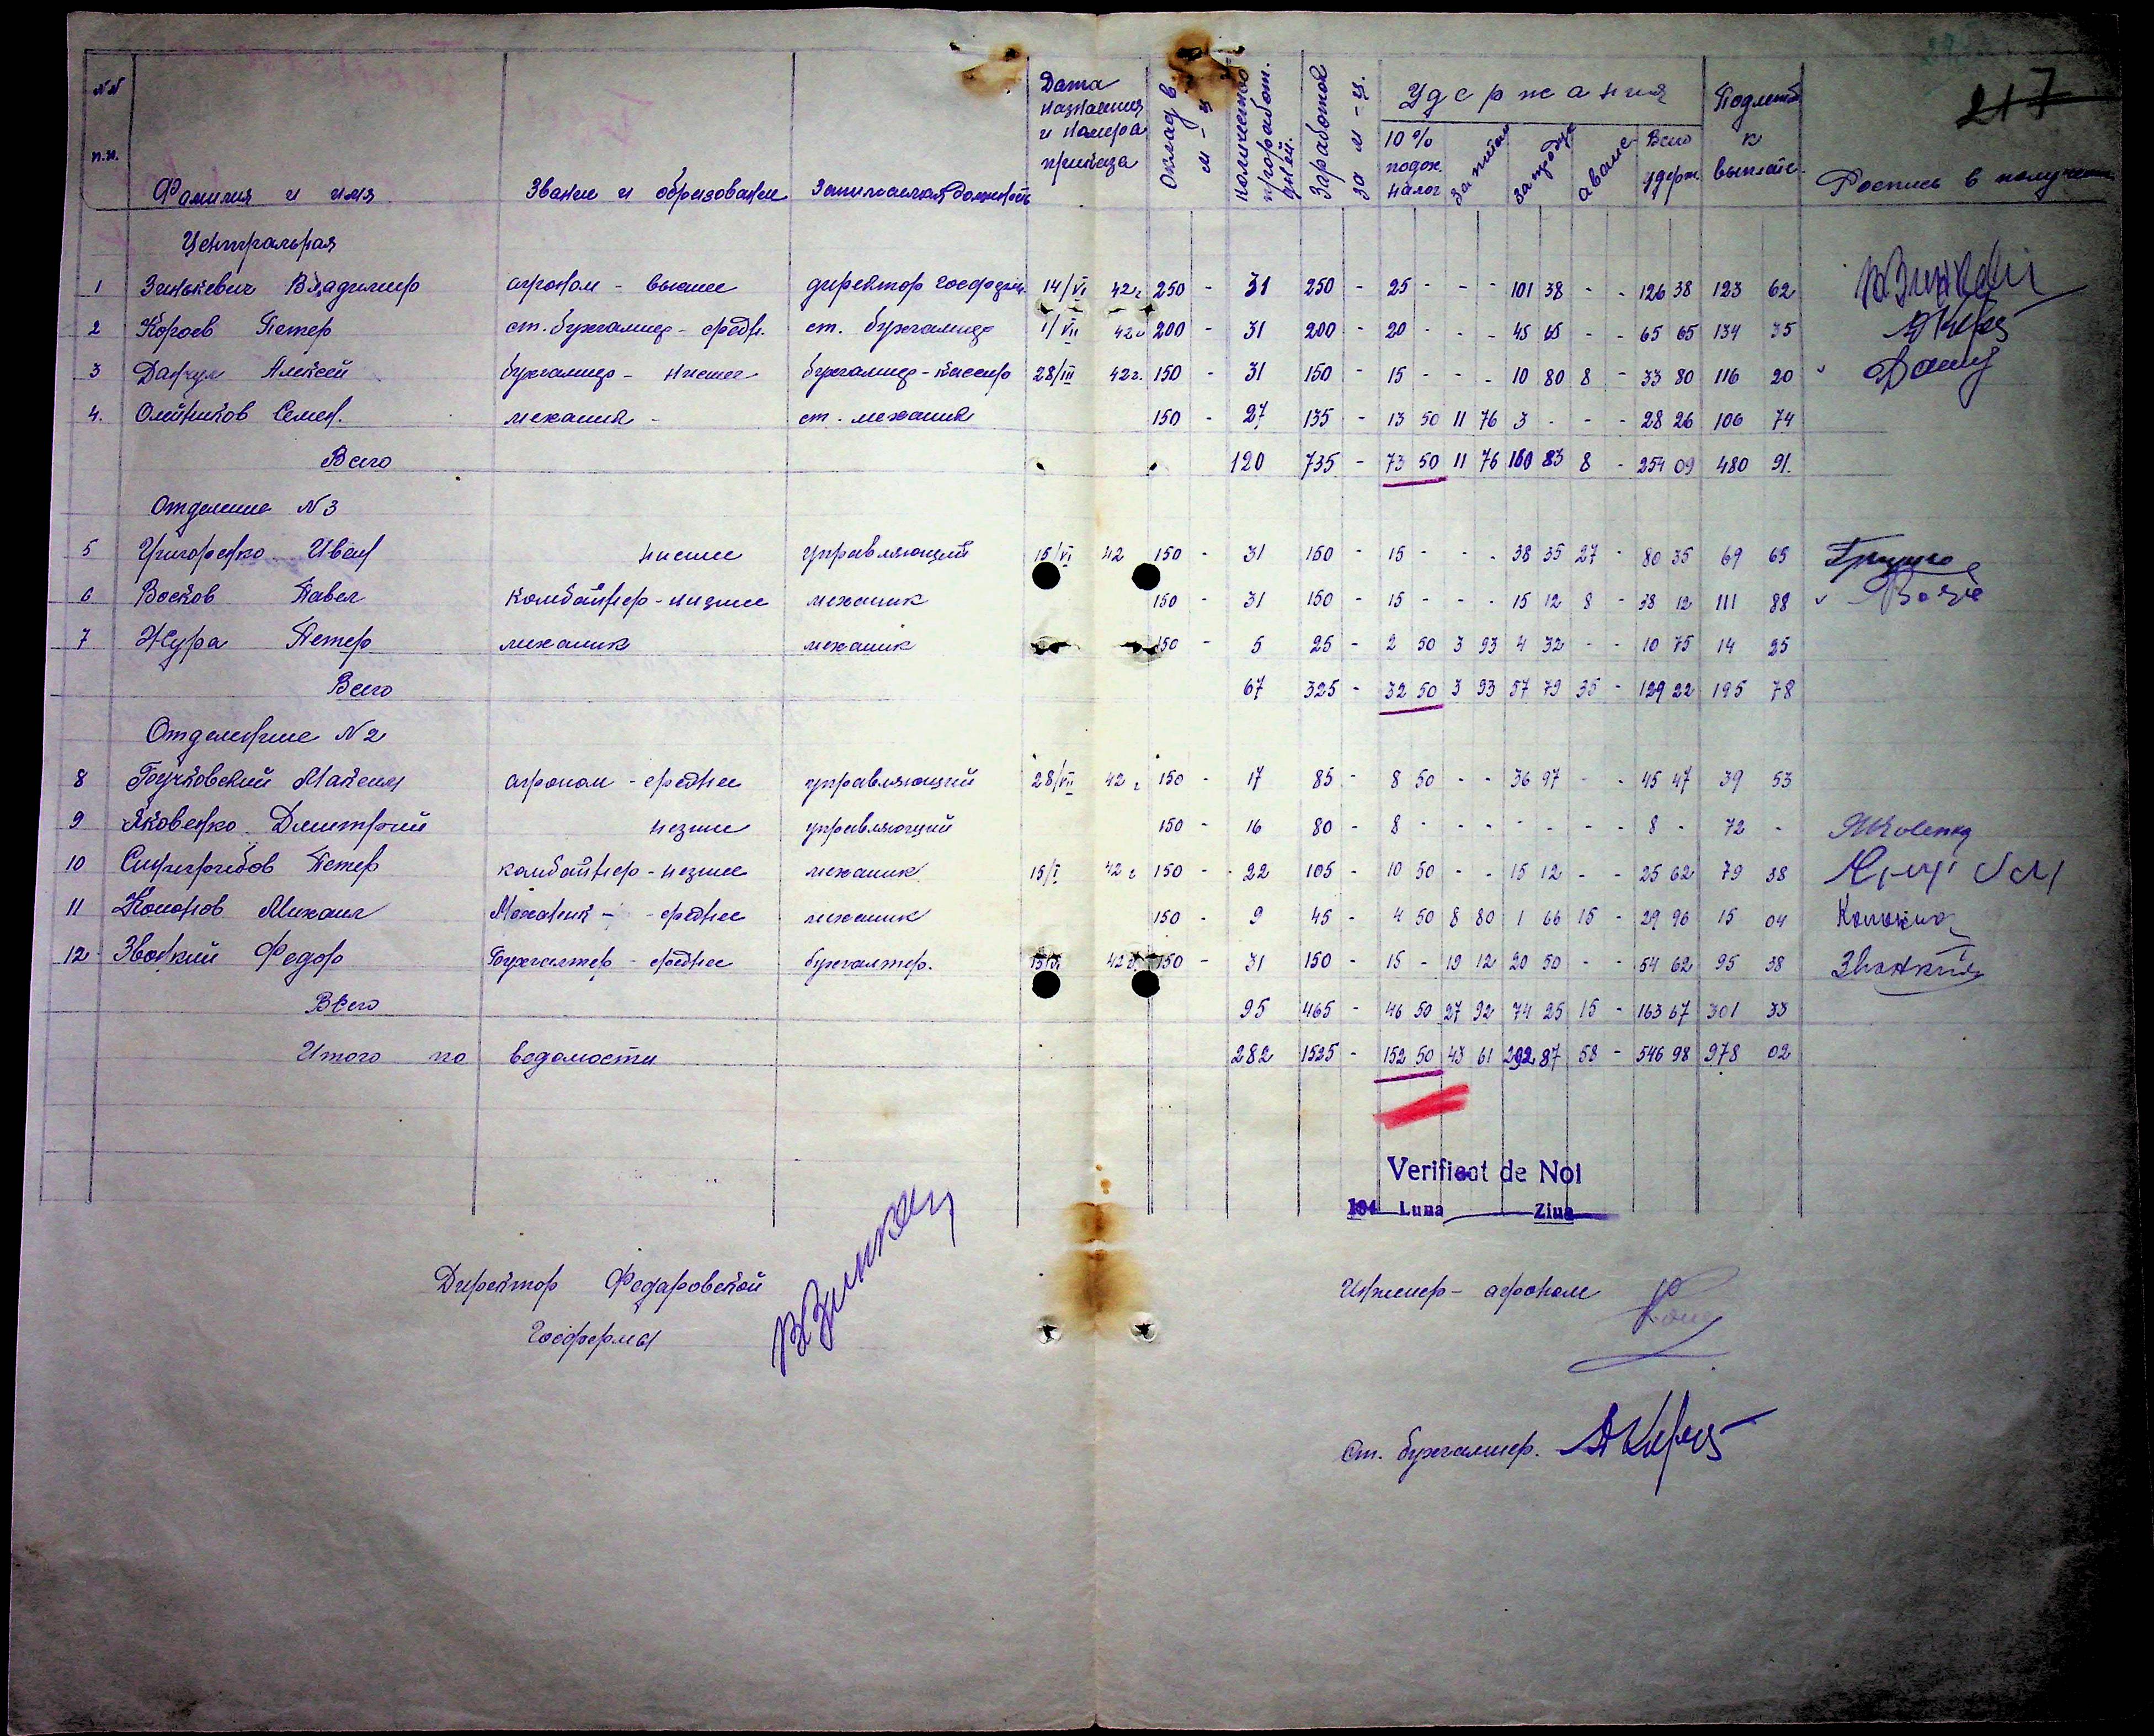 217
NN п.н. Фамилия и имя Звание и образование Занимаемая должность Дата назначения и номера приказа Оклад в м-ц Количество проработ. дней. Заработок за м-ц. Удержания 10% подох. налог За питан за продук аванс Всего удерж. Подлежит к выплате Роспись в получении
Центральная
1 Зинькевич Владимир агроном - высшее директор госферм. 14/VI 42г 250 - 31 250 - 25 - - - 101 38 - - 126 38 123 62
2 Короев Петер ст. бухгалтер - средн. ст. бухгалтер 1/VII 42г 200 - 31 200 - 20 - - - 45 65 - - 65 65 134 35
3 Данчул Алексей бухгалтер - низшее бухгалтер - кассир 28/III 42г. 150 - 31 150 - 15 - - - 10 80 8 - 33 80 116 20
4. Олейников Семен. механик - ст. механик 150 - 27 135 - 13 50 11 76 3 - - - 28 26 106 74
Всего 120 735 - 73 50 11 76 160 83 8 - 254 09 480 91.
Отделение N 3
5 Григоренко Иван низшее управляющий 15/VI 42 150 - 31 150 - 15 - - - 38 35 27 - 80 35 69 65
6 Восков Павел комбайнер - низшее механик 150 - 31 150 - 15 - - - 15 12 8 - 38 12 111 88
7 Жура Петер механик механик 150 - 5 25 - 2 50 3 93 4 32 - - 10 75 14 25
Всего 67 325 - 32 50 3 93 57 79 35 - 129 22 195 78
Отделение N 2
8 Бучковский Максим агроном - среднее управляющий 28/VII 42 г 150 - 17 85 - 8 50 - - 36 97 - - 45 47 39 53
9 Яковенко Дмитрий низшее управляющий 150 - 16 80 - 8 - - - - - - - 8 - 72 - Jakovenko
10 Петер комбайнер - низшее механик 15/I 42 г 150 - 22 105 - 10 50 - - 15 12 - - 25 62 79 38
11 Кононов Михаил Механик - среднее механик 150 - 9 45 - 4 50 8 80 1 66 15 - 29 96 15 04 Кононов
12 Звонкий Федор Бухгалтер - среднее бухгалтер. 15/VI 42г. 150 - 31 150 - 15 - 19 12 20 50 - - 54 62 95 38 Звонкий
Всего 95 465 - 46 50 27 92 74 25 15 - 163 67 301 33
Итого по ведомости 282 1525 - 152 50 43 61 292 87 58 - 546 98 978 02
Verificat de Noi
194 Luna Ziua
Директор Федаровской
Госфермы
Инженер - агроном
Ст. бухгалтер.